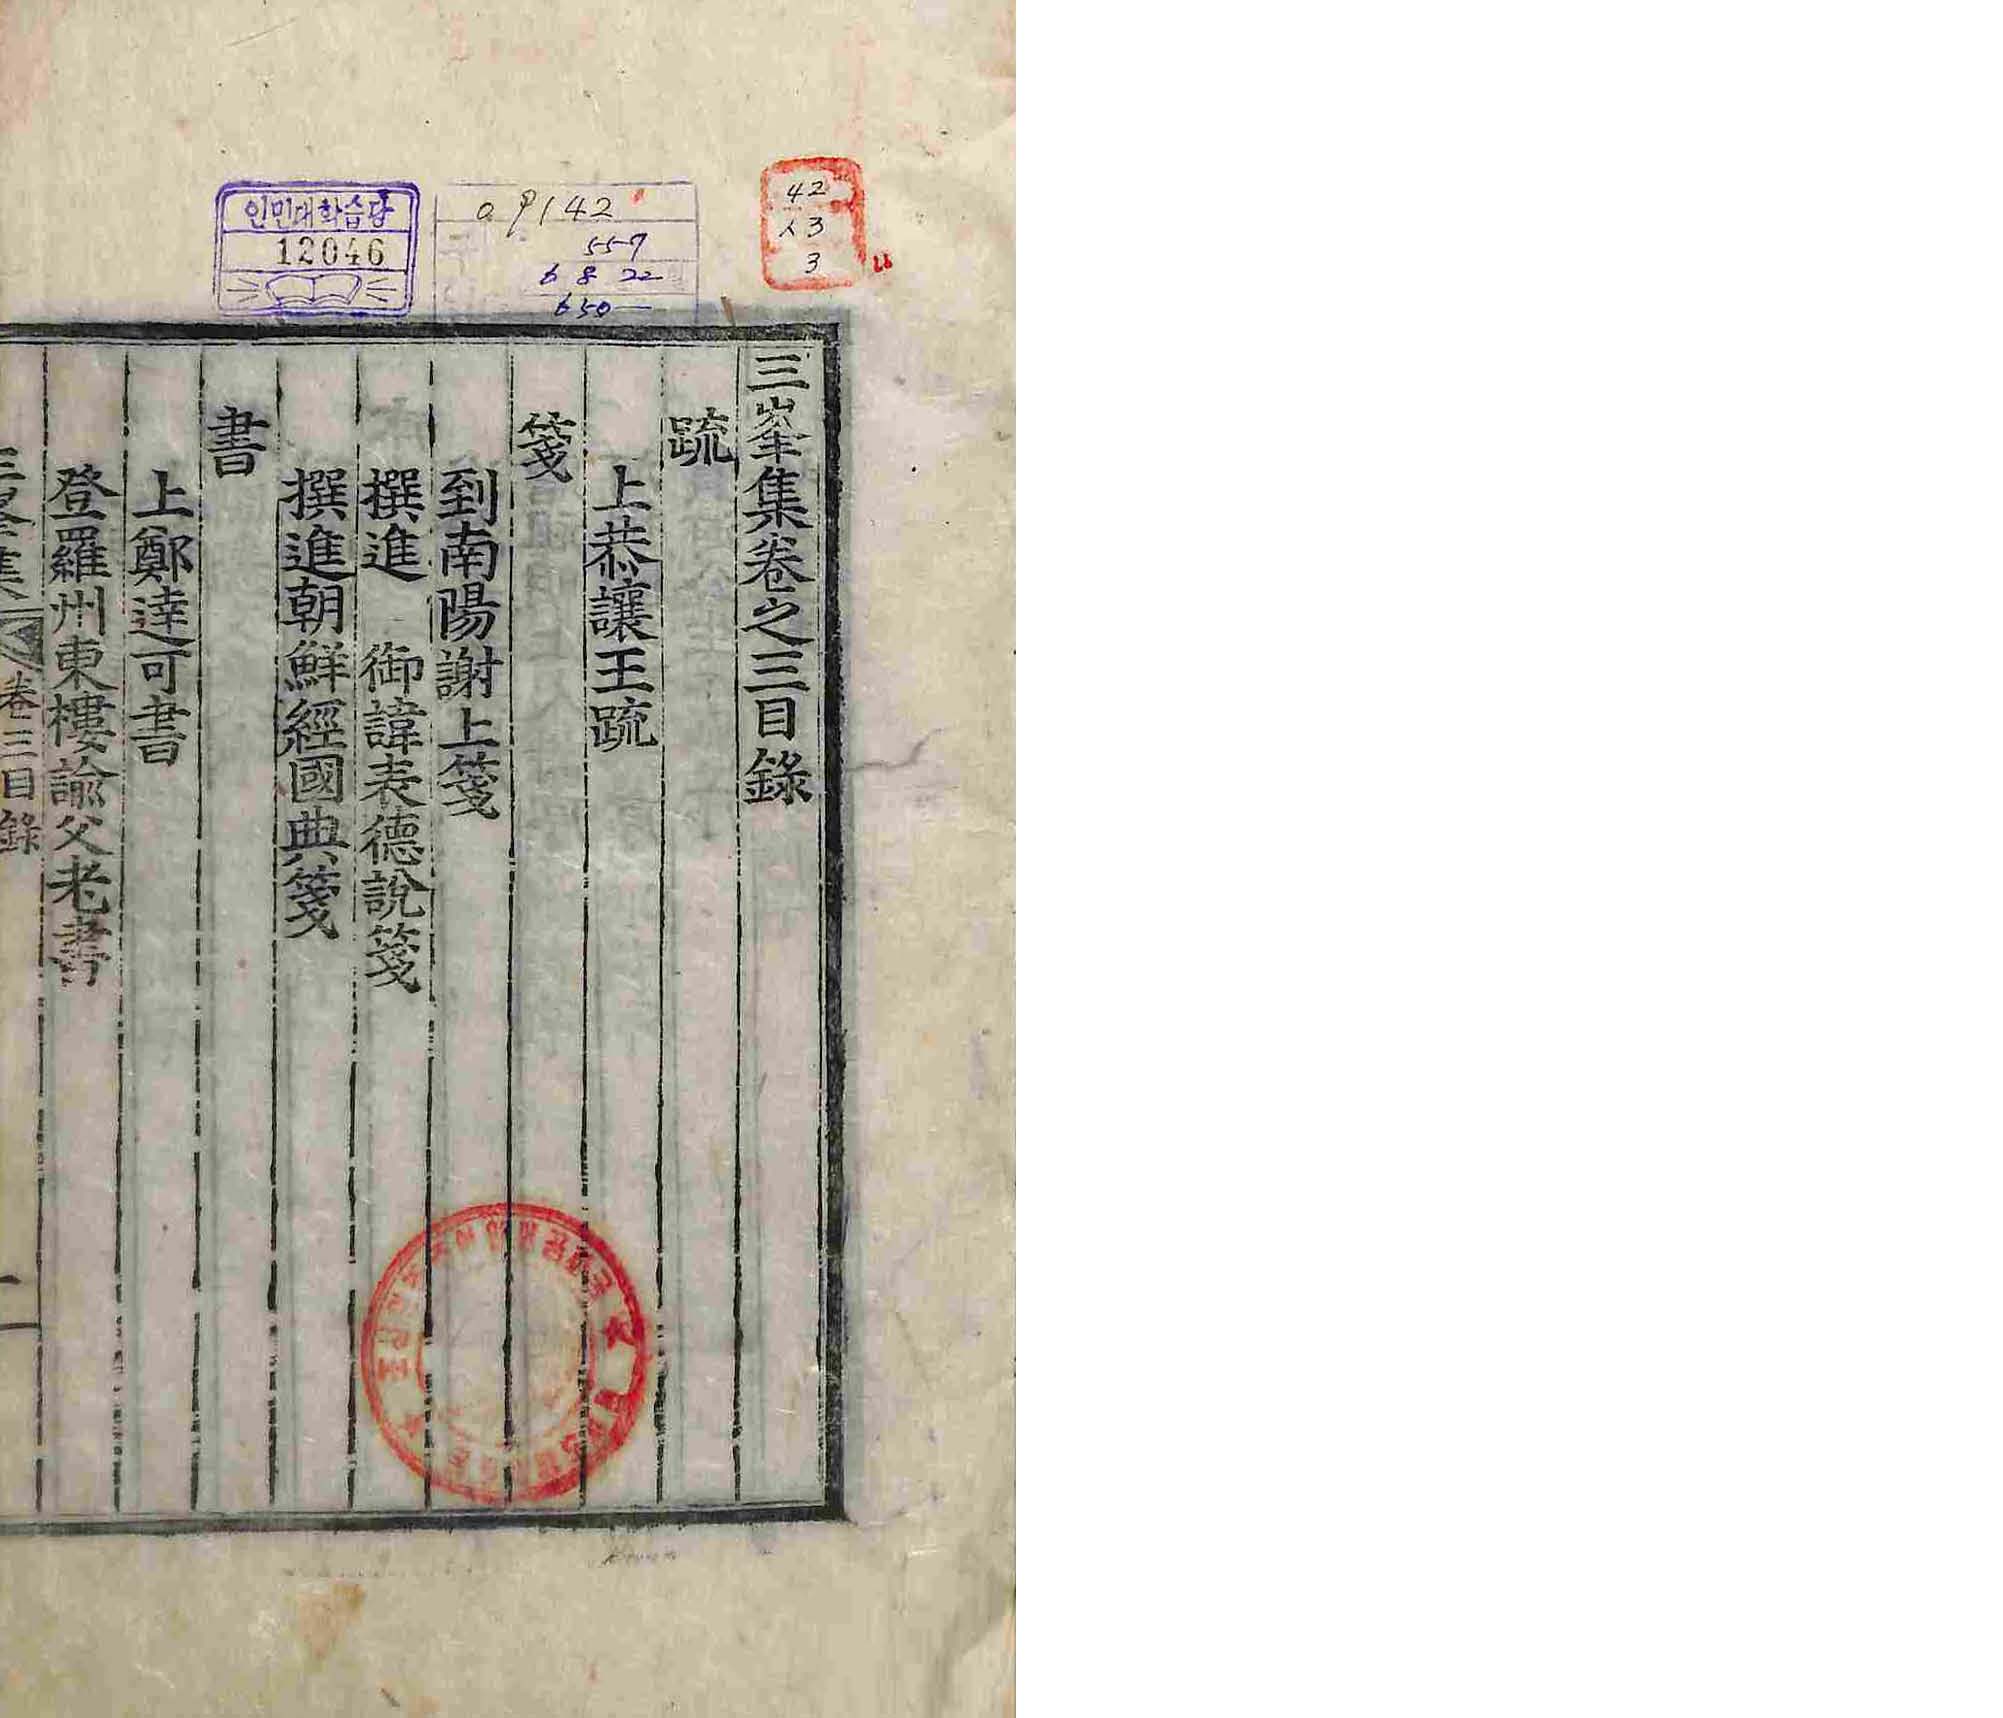 三峯集卷之三目錄
疏
上恭讓王疏
箋
到南陽謝上箋
撰進　御諱表德說箋
撰進朝鮮經國典箋
書
上鄭達可書
登羅州東樓諭父老書
三峯集
卷三目錄
인민대학습당
12046
142
557
6 8 22
650
42
ㅅ3
3